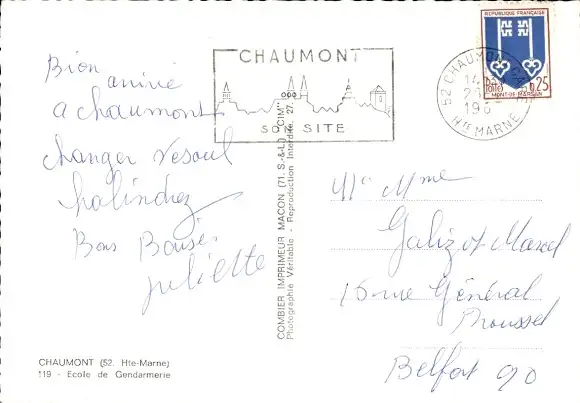 Bien
arrivé
a chaumont
changer Vesoul
Bons Baisés
juliette
CHAUMONT (52. Hte-Marne)
119 - Ecole de Gendarmerie
CHAUMONT
SON SITE
COMBIER IMPRIMEUR MACON (71. S.-&-L.) "CIM"
Photographie Véritable - Reproduction Interdite. 27.
RÉPUBLIQUE FRANÇAISE
0,25
MONT-DE-MARSAN
52 CHAUMONT
14
196
Hte MARNE
Mr Mme
Galizot Marcel
15 rue Général
Belfort 90